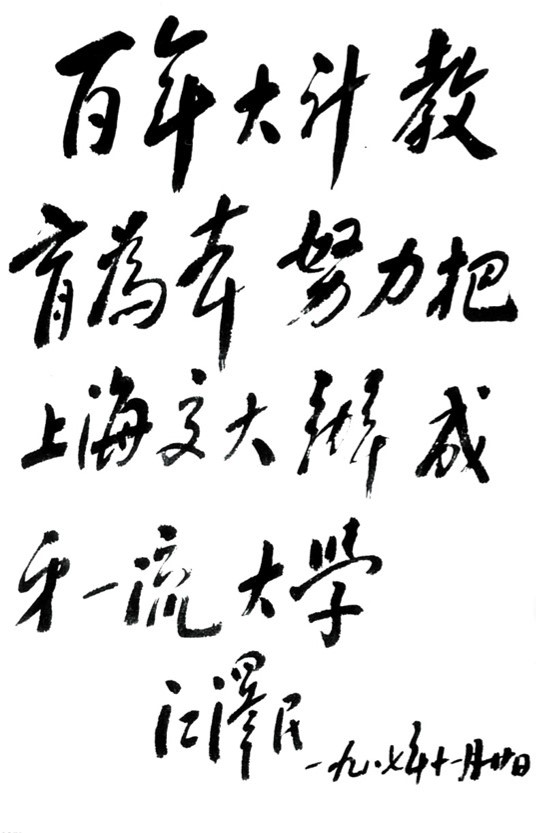 百年大计教
育為本努力把
上海交大辦成
第一流大学
江澤民
一九八七年十一月廿日